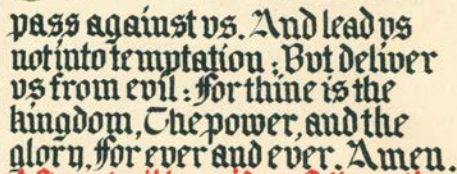 pass against vs. And lead vs
not into temptation : But deliver
vs from evil : for thine is the
kingdom, The power, and the
glory, for ever and ever. Amen.